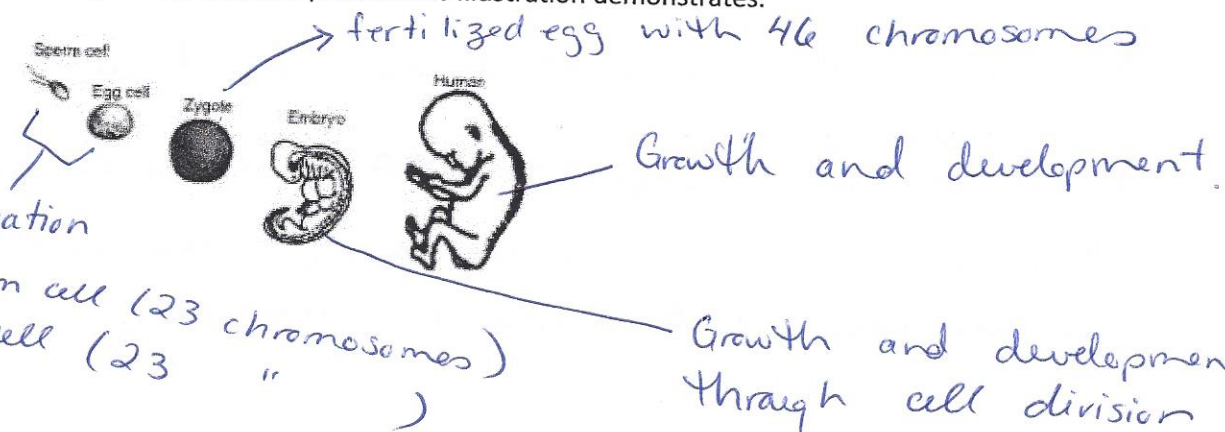 illustration demonstrates.
fertilized egg with 46 chromosomes
Sperm cell
Egg cell
Zygote
Embryo
Human
Growth and development.
ation
cell (23 chromosomes)
ell (23 " )
Growth and developmen
through cell division